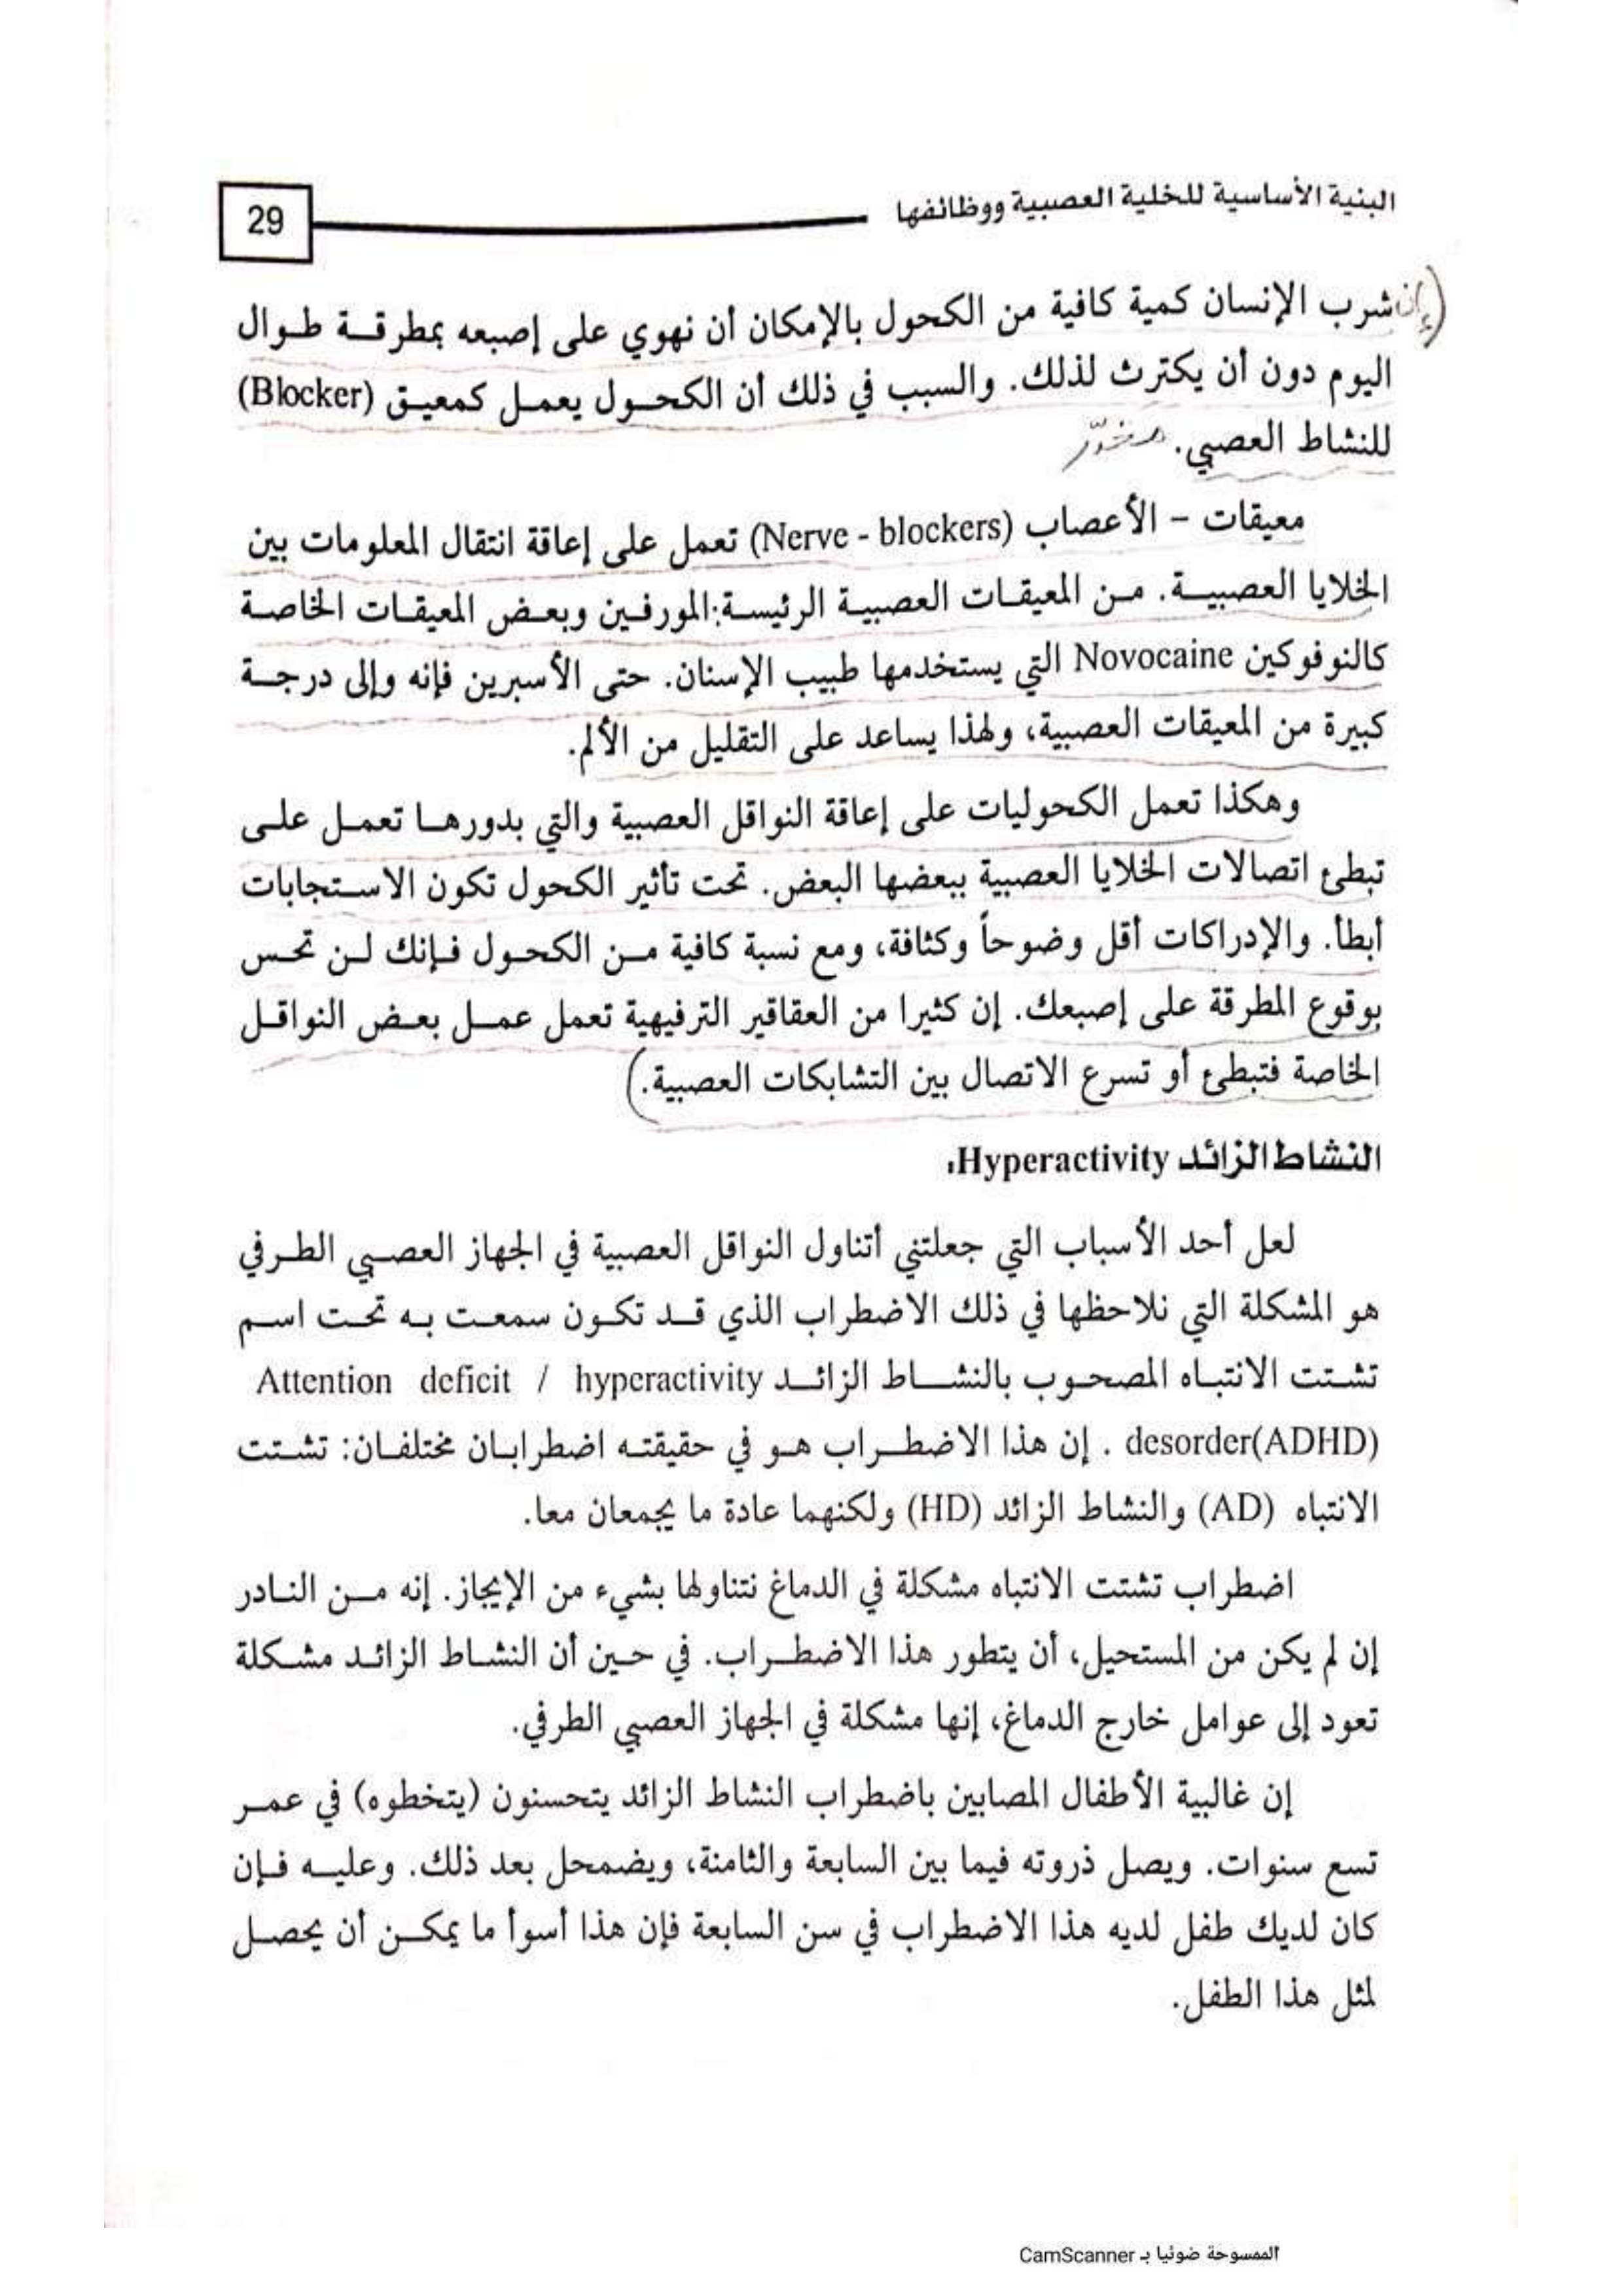 البنية الأساسية للخلية العصبية ووظائفها
29
(إن شرب الإنسان كمية كافية من الكحول بالإمكان أن نهوي على إصبعه بمطرقة طوال
اليوم دون أن يكترث لذلك. والسبب في ذلك أن الكحول يعمل كمعيق (Blocker)
للنشاط العصبي. مخدّر
معيقات – الأعصاب (Nerve - blockers) تعمل على إعاقة انتقال المعلومات بين
الخلايا العصبية. من المعيقات العصبية الرئيسة: المورفين وبعض المعيقات الخاصة
كالنوفوكين Novocaine التي يستخدمها طبيب الإسنان. حتى الأسبرين فإنه وإلى درجة
كبيرة من المعيقات العصبية، ولهذا يساعد على التقليل من الألم.
وهكذا تعمل الكحوليات على إعاقة النواقل العصبية والتي بدورها تعمل على
تبطئ اتصالات الخلايا العصبية ببعضها البعض. تحت تأثير الكحول تكون الاستجابات
أبطأ. والإدراكات أقل وضوحاً وكثافة، ومع نسبة كافية من الكحول فإنك لن تحس
بوقوع المطرقة على إصبعك. إن كثيرا من العقاقير الترفيهية تعمل عمل بعض النواقل
الخاصة فتبطئ أو تسرع الاتصال بين التشابكات العصبية.)
النشاط الزائد Hyperactivity:
لعل أحد الأسباب التي جعلتني أتناول النواقل العصبية في الجهاز العصبي الطرفي
هو المشكلة التي نلاحظها في ذلك الاضطراب الذي قد تكون سمعت به تحت اسم
تشتت الانتباه المصحوب بالنشاط الزائد Attention deficit / hyperactivity
desorder(ADHD) . إن هذا الاضطراب هو في حقيقته اضطرابان مختلفان: تشتت
الانتباه (AD) والنشاط الزائد (HD) ولكنهما عادة ما يجمعان معا.
اضطراب تشتت الانتباه مشكلة في الدماغ نتناولها بشيء من الإيجاز. إنه من النادر
إن لم يكن من المستحيل، أن يتطور هذا الاضطراب. في حين أن النشاط الزائد مشكلة
تعود إلى عوامل خارج الدماغ، إنها مشكلة في الجهاز العصبي الطرفي.
إن غالبية الأطفال المصابين باضطراب النشاط الزائد يتحسنون (يتخطوه) في عمر
تسع سنوات. ويصل ذروته فيما بين السابعة والثامنة، ويضمحل بعد ذلك. وعليه فإن
كان لديك طفل لديه هذا الاضطراب في سن السابعة فإن هذا أسوأ ما يمكن أن يحصل
لمثل هذا الطفل.
الممسوحة ضوئيا بـ CamScanner